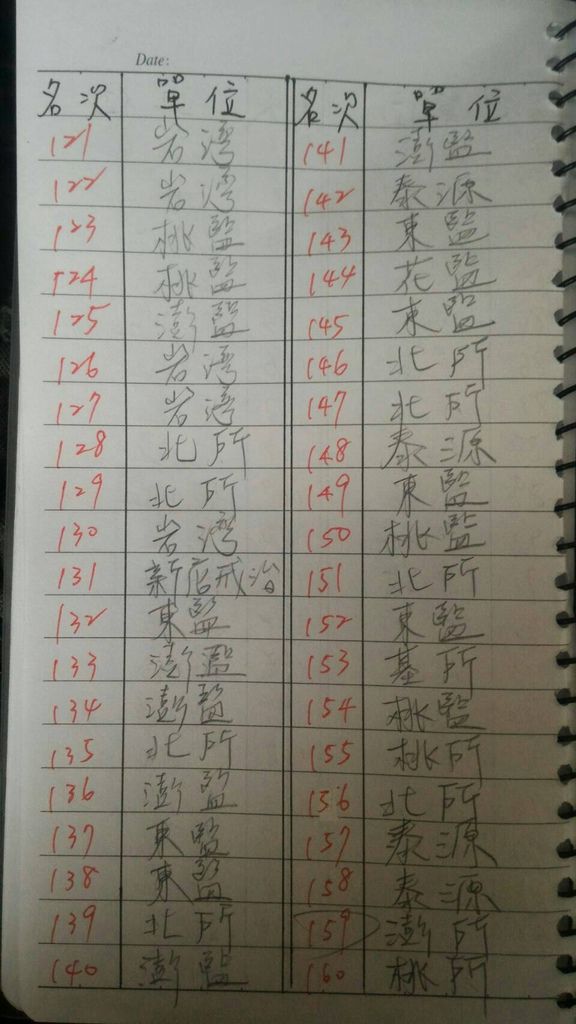 Date:
名次 單位 名次 單位
121 岩灣 141 澎監
122 岩灣 142 泰源
123 桃監 143 東監
124 桃監 144 花監
125 澎監 145 東監
126 岩灣 146 北所
127 岩灣 147 北所
128 北所 148 泰源
129 北所 149 東監
130 岩灣 150 桃監
131 新店戒治 151 北所
132 東監 152 東監
133 澎監 153 基所
134 澎監 154 桃監
135 北所 155 桃所
136 澎監 156 北所
137 東監 157 泰源
138 東監 158 泰源
139 北所 159 澎所
140 澎監 160 桃所